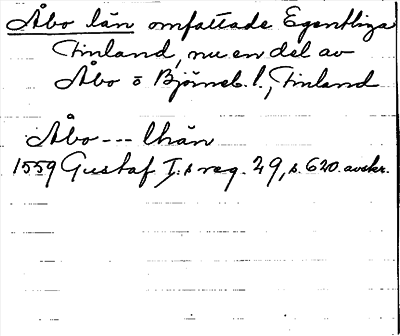 Åbo län omfattade Egentliga
Finland, nu en del av
Åbo o Björneb. l., Finland
Åbo --- lhän
1559 Gustaf I:s reg. 29, s. 620. avskr.